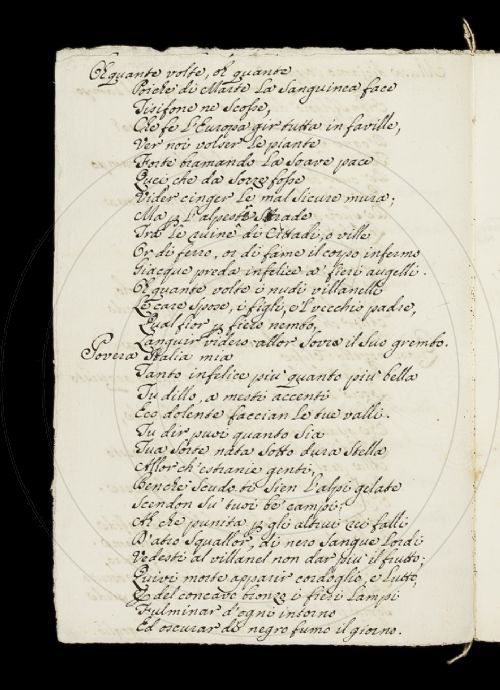 Oh quante volte, oh quante
Poiche di Marte La Sanguinea face
Tisifone ne Scosse,
Che fe L'Europa gir tutta in faville,
Ver noi volser Le piante
Forte bramando La Soave pace
Quei, che da Sozze fosse
Vider cinger Le mal Sicure mura;
Ma p L'alpestre Strade
Tra Le ruine di Cittadi, o ville
Or di ferro, or di fame il corpo infermo
Giacque preda infelice a' fieri augelli.
Oh quante volte i nudi villanelli
Le care Spose, i figli, e'l vecchio padre,
Qual fior p fiero nembo,
Languir videro allor Sovra il Suo grembo.
Povera Italia mia
Tanto infelice piu quanto piu bella
Tu dillo, a mesti accenti
Eco dolente faccian Le tue valli.
Tu dir puoi quanto Sia
Tua Sorte nata Sotto dura Stella
Allor ch'estranie genti,
Benche Scudo ti Sien L'alpi gelate
Scendon Su' tuoi be' campi;
Ah che punita p gli altrui rei falli
D'atro Squallor, di nero Sangue Lordi
Vedesti al villanel non dar piu il frutto;
Quivi morte apparir cordoglio, e Lutto,
E del concavo bronzo i fieri Lampi
Fulminar d'ogni intorno
Ed oscurar di negro fumo il giorno.